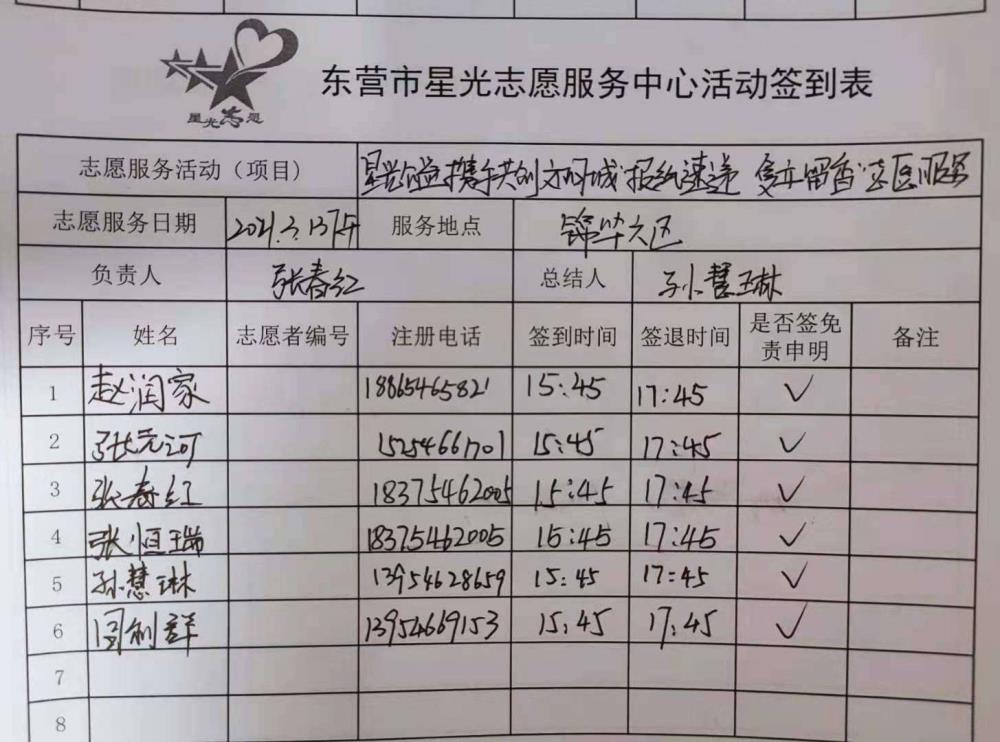 星光志愿
东营市星光志愿服务中心活动签到表
志愿服务活动（项目） 星光公益 携手共创文明城 报纸速递 爱在留香 志愿服务
志愿服务日期 2021.3.13下午 服务地点 锦华六区
负责人 张春红 总结人 孙慧琳
序号 姓名 志愿者编号 注册电话 签到时间 签退时间 是否签免责申明 备注
1 赵润家 18865465821 15:45 17:45 ✓
2 张元河 15254661701 15:45 17:45 ✓
3 张春红 18375462005 15:45 17:45 ✓
4 张恒瑞 18375462005 15:45 17:45 ✓
5 孙慧琳 13954628659 15:45 17:45 ✓
6 周利群 13954669153 15:45 17:45 ✓
7
8